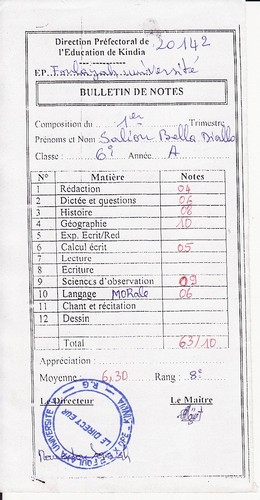 Direction Préfectoral de
l'Education de Kindia
20142
EP. Foulayah université
BULLETIN DE NOTES
Composition du 1er Trimestre
Prénoms et Nom Saliou Bella Diallo
Classe : 6è Année A
N° Matière Notes
1 Rédaction 04
2 Dictée et questions 06
3 Histoire 08
4 Géographie 10
5 Exp. Ecrit/Red
6 Calcul écrit 05
7 Lecture
8 Ecriture
9 Sciences d'observation 09
10 Langage MORale 06
11 Chant et récitation
12 Dessin
Total 63/10
Appréciation :
Moyenne : 6,30 Rang : 8è
Le Directeur Le Maitre
LE DIRECTEUR
R.G